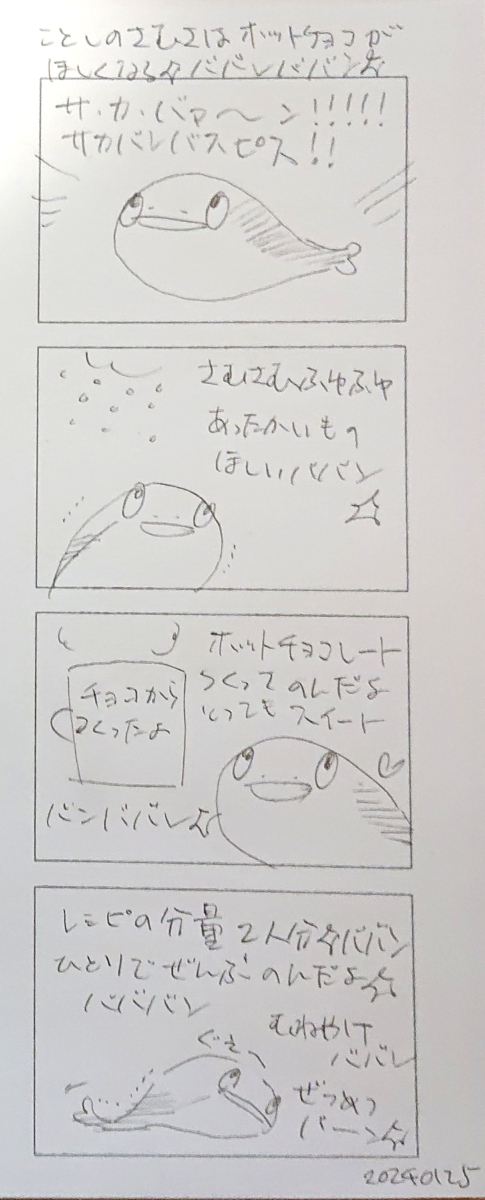 ことしのさむさは ホットチョコが
ほしくなる☆ババレババン☆
サ・カ・バァ〜ン!!!!!
サカバンバスピス!!
さむさむふゆふゆ
あったかいもの
ほしいババン
☆
ホットチョコレート
つくって のんだよ
とっても スイート
チョコから
つくったよ
バンババレ☆
レシピの分量 2人分☆ババン
ひとりでぜんぶのんだよ☆
ババババン
むねやけ
ババレ
ぐえっ
ぜつめつ
バーン☆
20240125